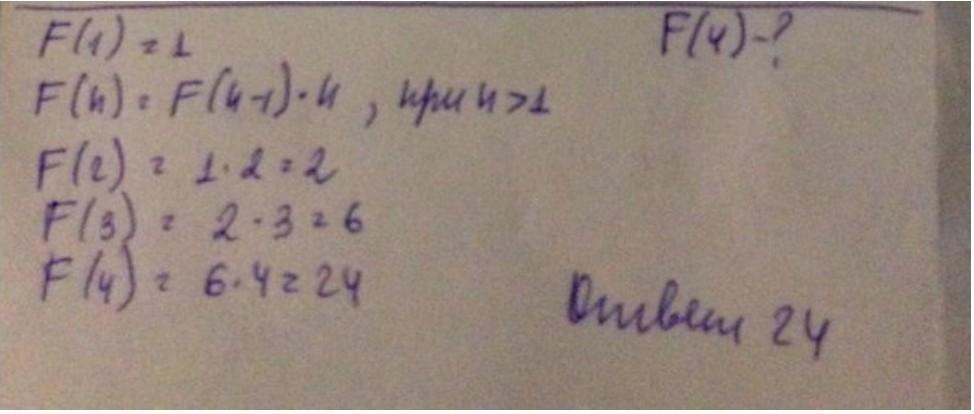 F(1) = 1
F(4)-?
F(n) = F(n-1)·n , при n>1
F(2) = 1·2=2
F(3) = 2·3=6
F(4) = 6·4=24
Ответ 24